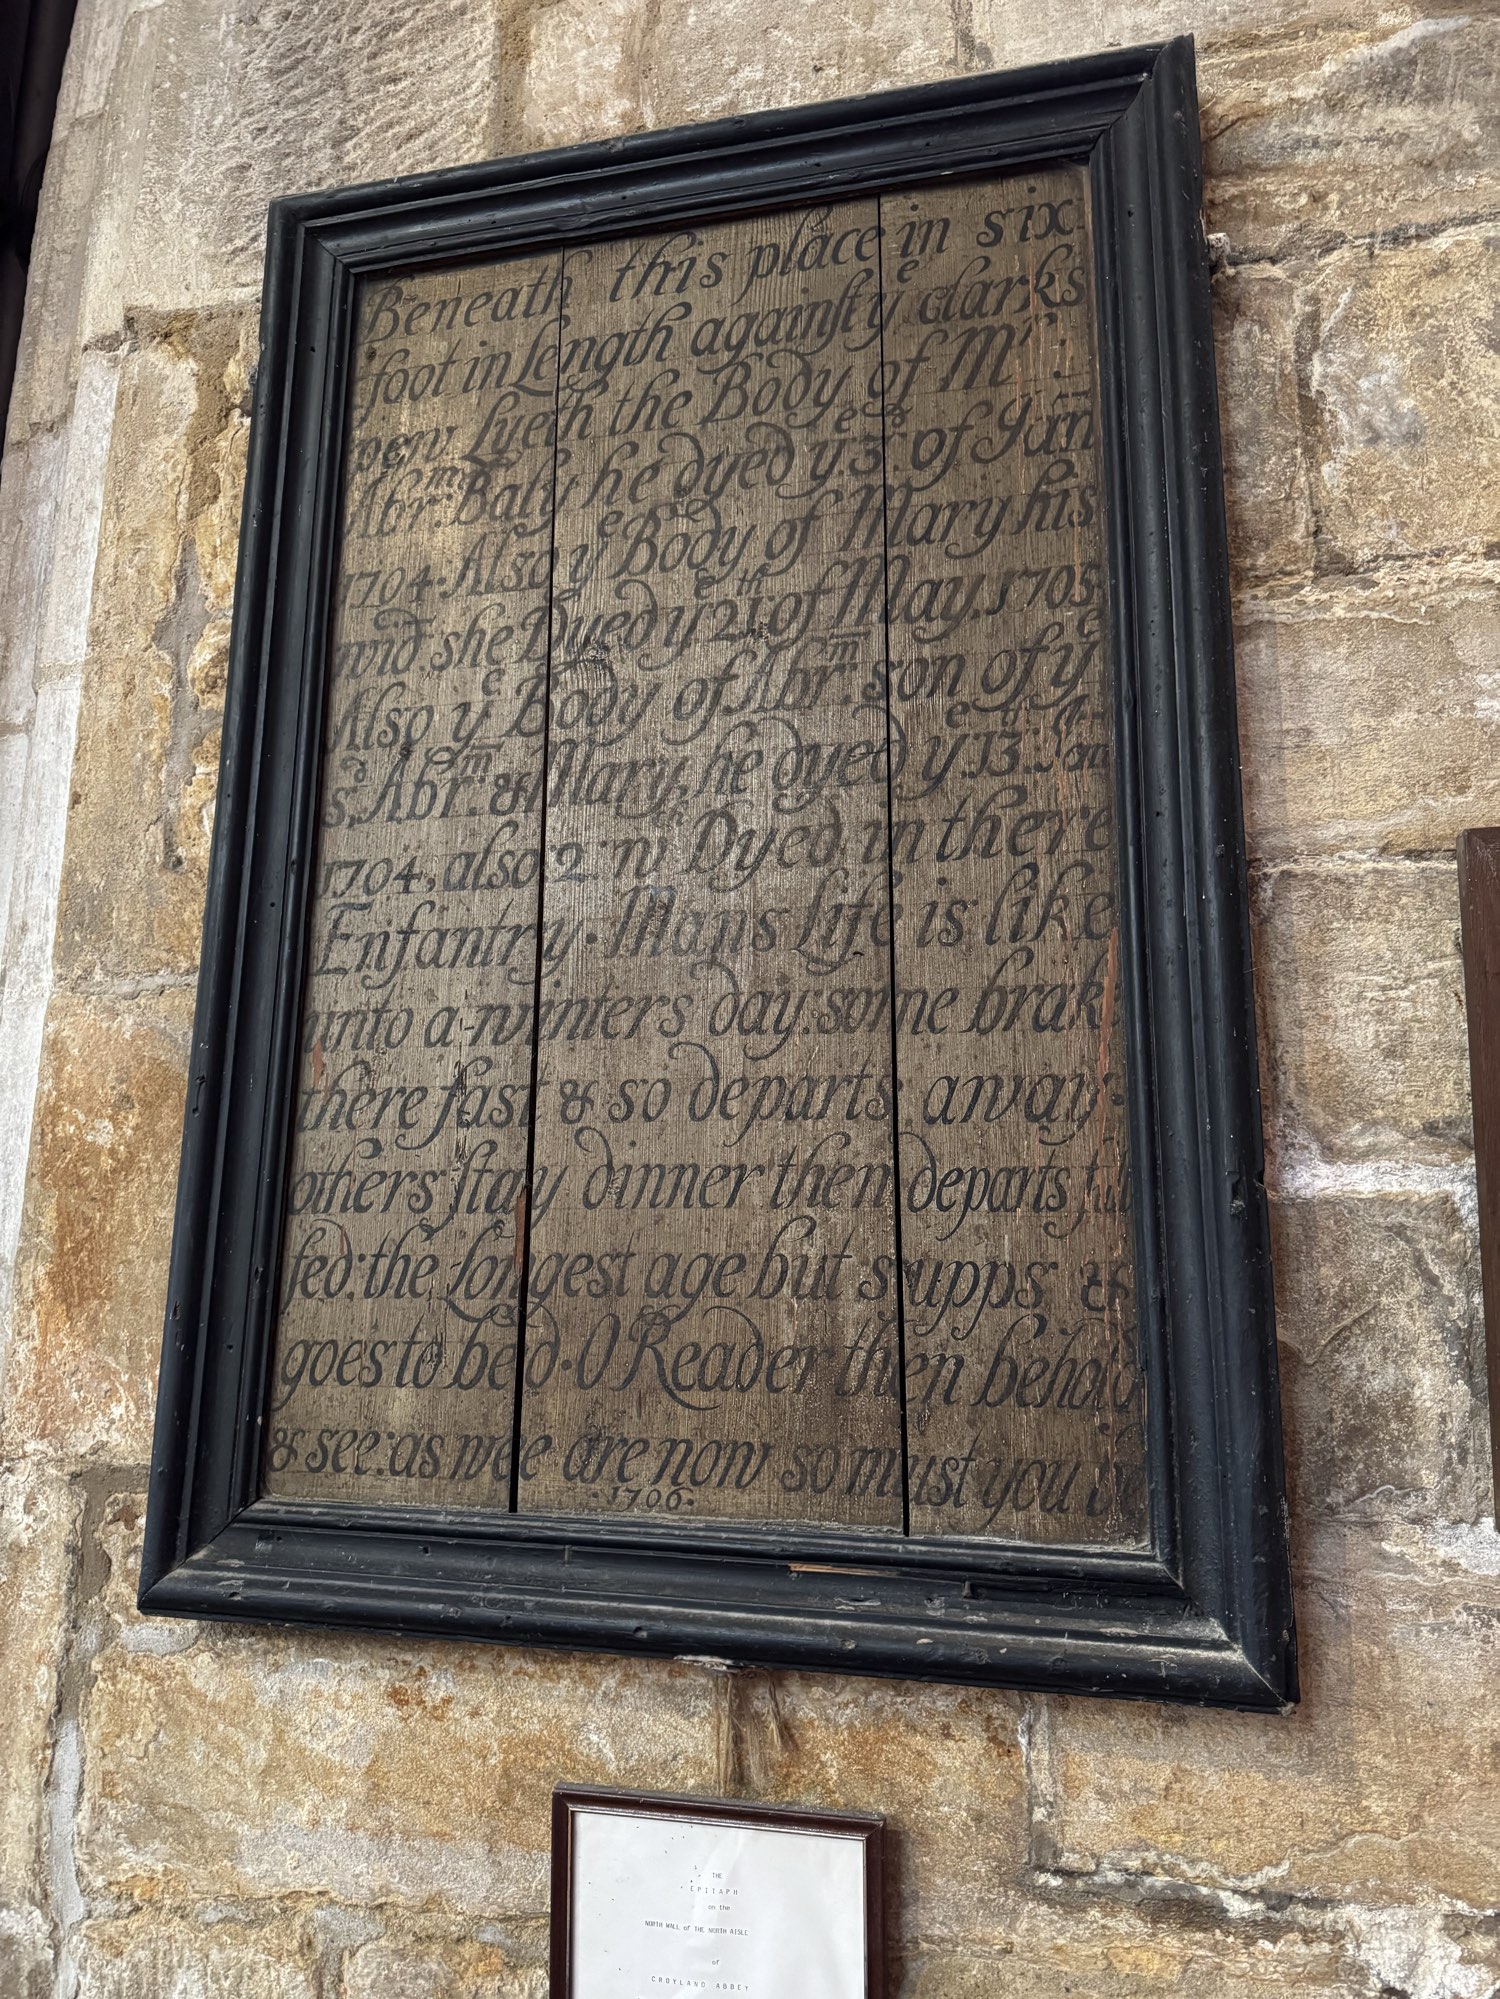 Beneath this place in six
foot in Length against yᵉ clarks
pew Lyeth the Body of Mʳ.
Abrᵐ. Baly he dyed yᵉ 3ᵈ. of Jan
1704. Also yᵉ Body of Mary his
wid. she Dyed yᵉ 21ᵗʰ of May. 1705
Also yᵉ Body of Abrᵐ. son of yᵉ
sᵈ, Abrᵐ. & Mary, he dyed yᵉ 13
1704, also 2 Dyed in there
Enfantry. Mans Life is like
unto a winters day: some brake
there fast & so departs away:
others stay dinner then departs full
fed: the Longest age but supps &
goes to bed. O Reader then behold
& see: as wee are now so must you be
.1706.
THE
EPITAPH
on the
NORTH WALL of THE NORTH AISLE
of
CROYLAND ABBEY